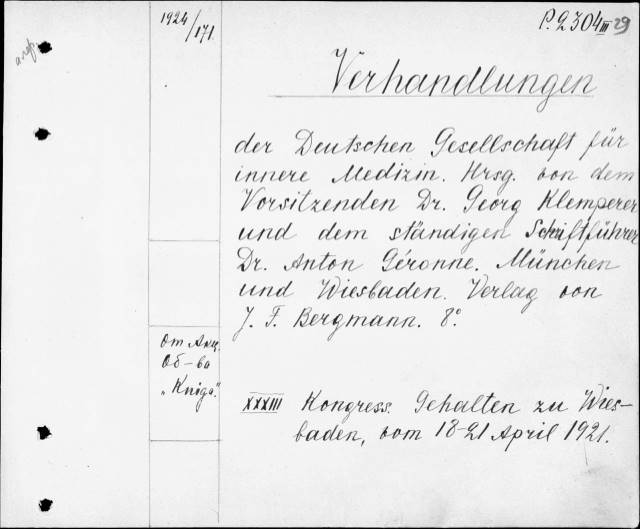 1924/171.
P.2304III 29
Verhandlungen
der Deutschen Gesellschaft für
innere Medizin. Hrsg. von dem
Vorsitzenden Dr. Georg Klemperer
und dem ständigen Schriftführer
Dr. Anton Géronne. München
und Wiesbaden. Verlag von
J. F. Bergmann. 8°.
от Акц.
Об-ва
„Kniga."
XXXIII Kongress. Gehalten zu Wies-
baden, vom 18-21 April 1921.